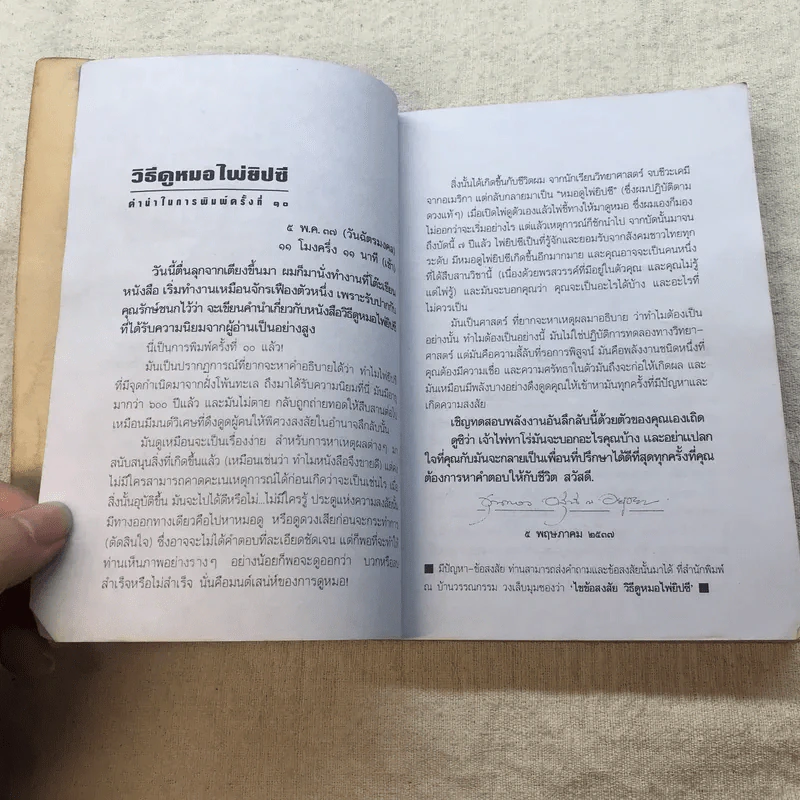 วิธีดูหมอไพ่ยิปซี
คำนำในการพิมพ์ครั้งที่ ๑๐
๕ พ.ค. ๓๗ (วันฉัตรมงคล)
๑๑ โมงครึ่ง ๑๑ นาที (เช้า)
วันนี้ตื่นลุกจากเตียงขึ้นมา ผมก็มานั่งทำงานที่โต๊ะเขียน
หนังสือ เริ่มทำงานเหมือนจักรเฟืองตัวหนึ่ง เพราะรับปากกับ
คุณรักษ์ชนกไว้ว่า จะเขียนคำนำเกี่ยวกับหนังสือวิธีดูหมอไพ่ยิปซี
ที่ได้รับความนิยมจากผู้อ่านเป็นอย่างสูง
นี่เป็นการพิมพ์ครั้งที่ ๑๐ แล้ว!
มันเป็นปรากฏการณ์ที่ยากจะหาคำอธิบายได้ว่า ทำไมไพ่ยิปซี
ที่มีจุดกำเนิดมาจากฝั่งโพ้นทะเล ถึงมาได้รับความนิยมที่นี่ มันมีอายุ
มากว่า ๖๐๐ ปีแล้ว และมันไม่ตาย กลับถูกถ่ายทอดให้สืบสานต่อไป
เหมือนมีมนต์วิเศษที่ดึงดูดผู้คนให้พิศวงสงสัยในอำนาจลึกลับนั้น
มันดูเหมือนจะเป็นเรื่องง่าย สำหรับการหาเหตุผลต่างๆ มา
สนับสนุนสิ่งที่เกิดขึ้นแล้ว (เหมือนเช่นว่า ทำไมหนังสือจึงขายดี) แต่คง
ไม่มีใครสามารถคาดคะเนเหตุการณ์ได้ก่อนเกิดว่าจะเป็นเช่นไร เมื่อ
สิ่งนั้นอุบัติขึ้น มันจะไปได้ดีหรือไม่...ไม่มีใครรู้ ประตูแห่งความสงสัยนั้น
มีทางออกทางเดียวคือไปหาหมอดู หรือดูดวงเสียก่อนจะกระทำการ
(ตัดสินใจ) ซึ่งอาจจะไม่ได้คำตอบที่ละเอียดชัดเจน แต่ก็พอที่จะทำให้
ท่านเห็นภาพอย่างรางๆ อย่างน้อยก็พอจะดูออกว่า บวกหรือลบ
สำเร็จหรือไม่สำเร็จ นั่นคือมนต์เสน่ห์ของการดูหมอ!
สิ่งนั้นได้เกิดขึ้นกับชีวิตผม จากนักเรียนวิทยาศาสตร์ จบชีวะเคมี
จากอเมริกา แต่กลับกลายมาเป็น "หมอดูไพ่ยิปซี" (ซึ่งผมปฏิบัติตาม
ดวงแท้ๆ) เมื่อเปิดไพ่ดูตัวเองแล้วไพ่ชี้ทางให้มาดูหมอ ซึ่งผมเองก็มอง
ไม่ออกว่าจะเริ่มอย่างไร แต่แล้วเหตุการณ์ก็ชักนำไป จากบัดนั้นมาจน
ถึงบัดนี้ ๗ ปีแล้ว ไพ่ยิปซีเป็นที่รู้จักและยอมรับจากสังคมชาวไทยทุก
ระดับ มีหมอดูไพ่ยิปซีเกิดขึ้นอีกมากมาย และคุณอาจจะเป็นคนหนึ่ง
ที่ได้สืบสานวิชานี้ (เนื่องด้วยพรสวรรค์ที่มีอยู่ในตัวคุณ และคุณไม่รู้
แต่ไพ่รู้) และมันจะบอกคุณว่า คุณจะเป็นอะไรได้บ้าง และอะไรที่
ไม่ควรเป็น
มันเป็นศาสตร์ ที่ยากจะหาเหตุผลมาอธิบาย ว่าทำไมต้องเป็น
อย่างนั้น ทำไมต้องเป็นอย่างนี้ มันไม่ใช่ปฏิบัติการทดลองทางวิทยา-
ศาสตร์ แต่มันคือความลี้ลับที่รอการพิสูจน์ มันคือพลังงานชนิดหนึ่งที่
คุณต้องมีความเชื่อ และความศรัทธาในตัวมันถึงจะก่อให้เกิดผล และ
มันเหมือนมีพลังบางอย่างดึงดูดคุณให้เข้าหามันทุกครั้งที่มีปัญหาและ
เกิดความสงสัย
เชิญทดสอบพลังงานอันลึกลับนี้ด้วยตัวของคุณเองเถิด
ดูซิว่า เจ้าไพ่ทาโร่มันจะบอกอะไรคุณบ้าง และอย่าแปลก
ใจที่คุณกับมันจะกลายเป็นเพื่อนที่ปรึกษาได้ดีที่สุดทุกครั้งที่คุณ
ต้องการหาคำตอบให้กับชีวิต สวัสดี.
๕ พฤษภาคม ๒๕๓๗
■ มีปัญหา-ข้อสงสัย ท่านสามารถส่งคำถามและข้อสงสัยนั้นมาได้ ที่สำนักพิมพ์
ณ บ้านวรรณกรรม วงเล็บมุมซองว่า 'ไขข้อสงสัย วิธีดูหมอไพ่ยิปซี' ■